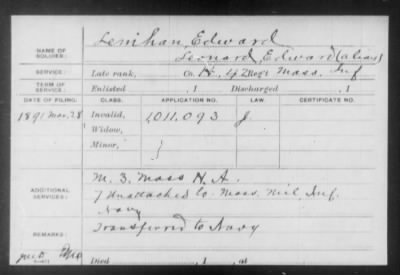 NAME OF SOLDIER: Lenihan, Edward
Leonard, Edward (alias)
SERVICE: Late rank, Co. H, 42 Reg't Mass. Inf
TERM OF SERVICE: Enlisted , 1 Discharged , 1
DATE OF FILING. CLASS. APPLICATION NO. LAW. CERTIFICATE NO.
1891 Mar. 28 Invalid, 1,011,093 J
Widow,
Minor,
ADDITIONAL SERVICES: M. 3. Mass H. A.
7 Unattached Co. Mass. Mil. Inf.
Navy
REMARKS: Transferred to Navy
Died , 1 , at